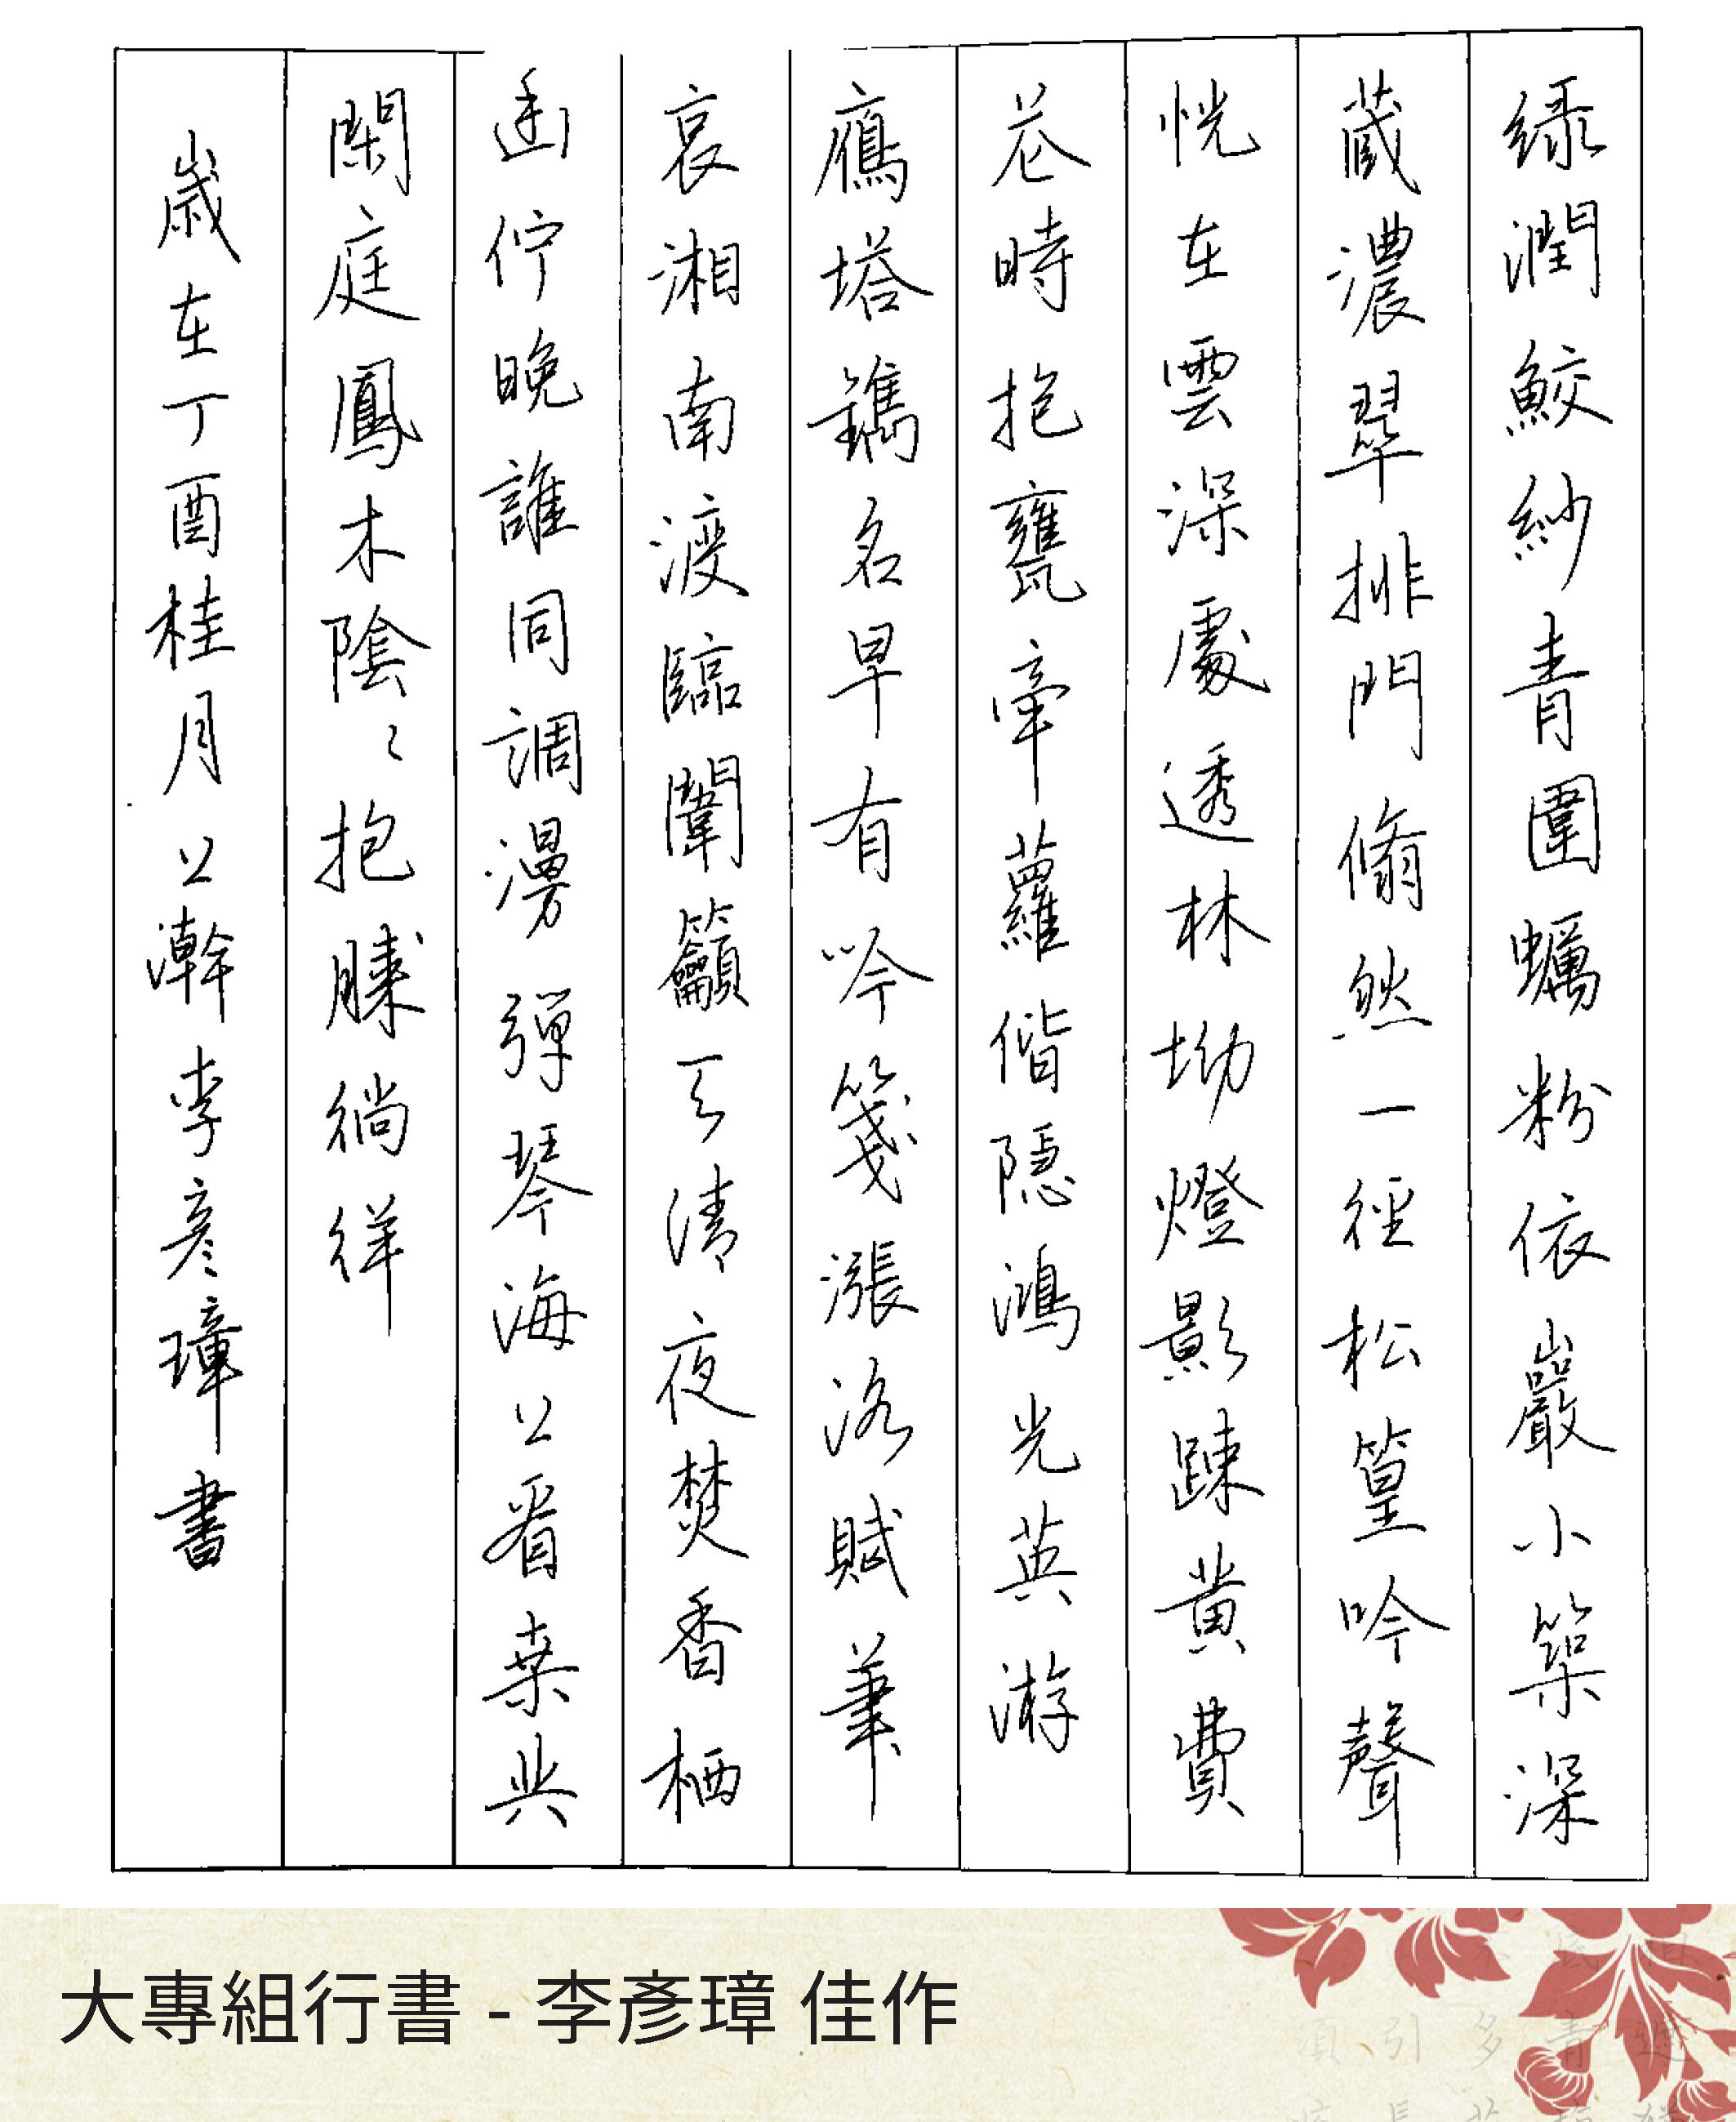 綠潤鮫紗青圍蠣粉依巖小築深
藏濃翠排門翛然一徑松篁吟聲
恍在雲深處透林坳燈影踈黃費
花時抱甕牽蘿偕隱鴻光英游
鴈塔鐫名早有吟箋漲洛賦筆
哀湘南渡臨闈籟天清夜焚香栖
幽佇晚誰同調漫彈琴海上看桑與
閑庭鳳木陰〻抱膝徜徉
歲在丁酉桂月上澣李彥璋書
大專組行書 - 李彥璋 佳作